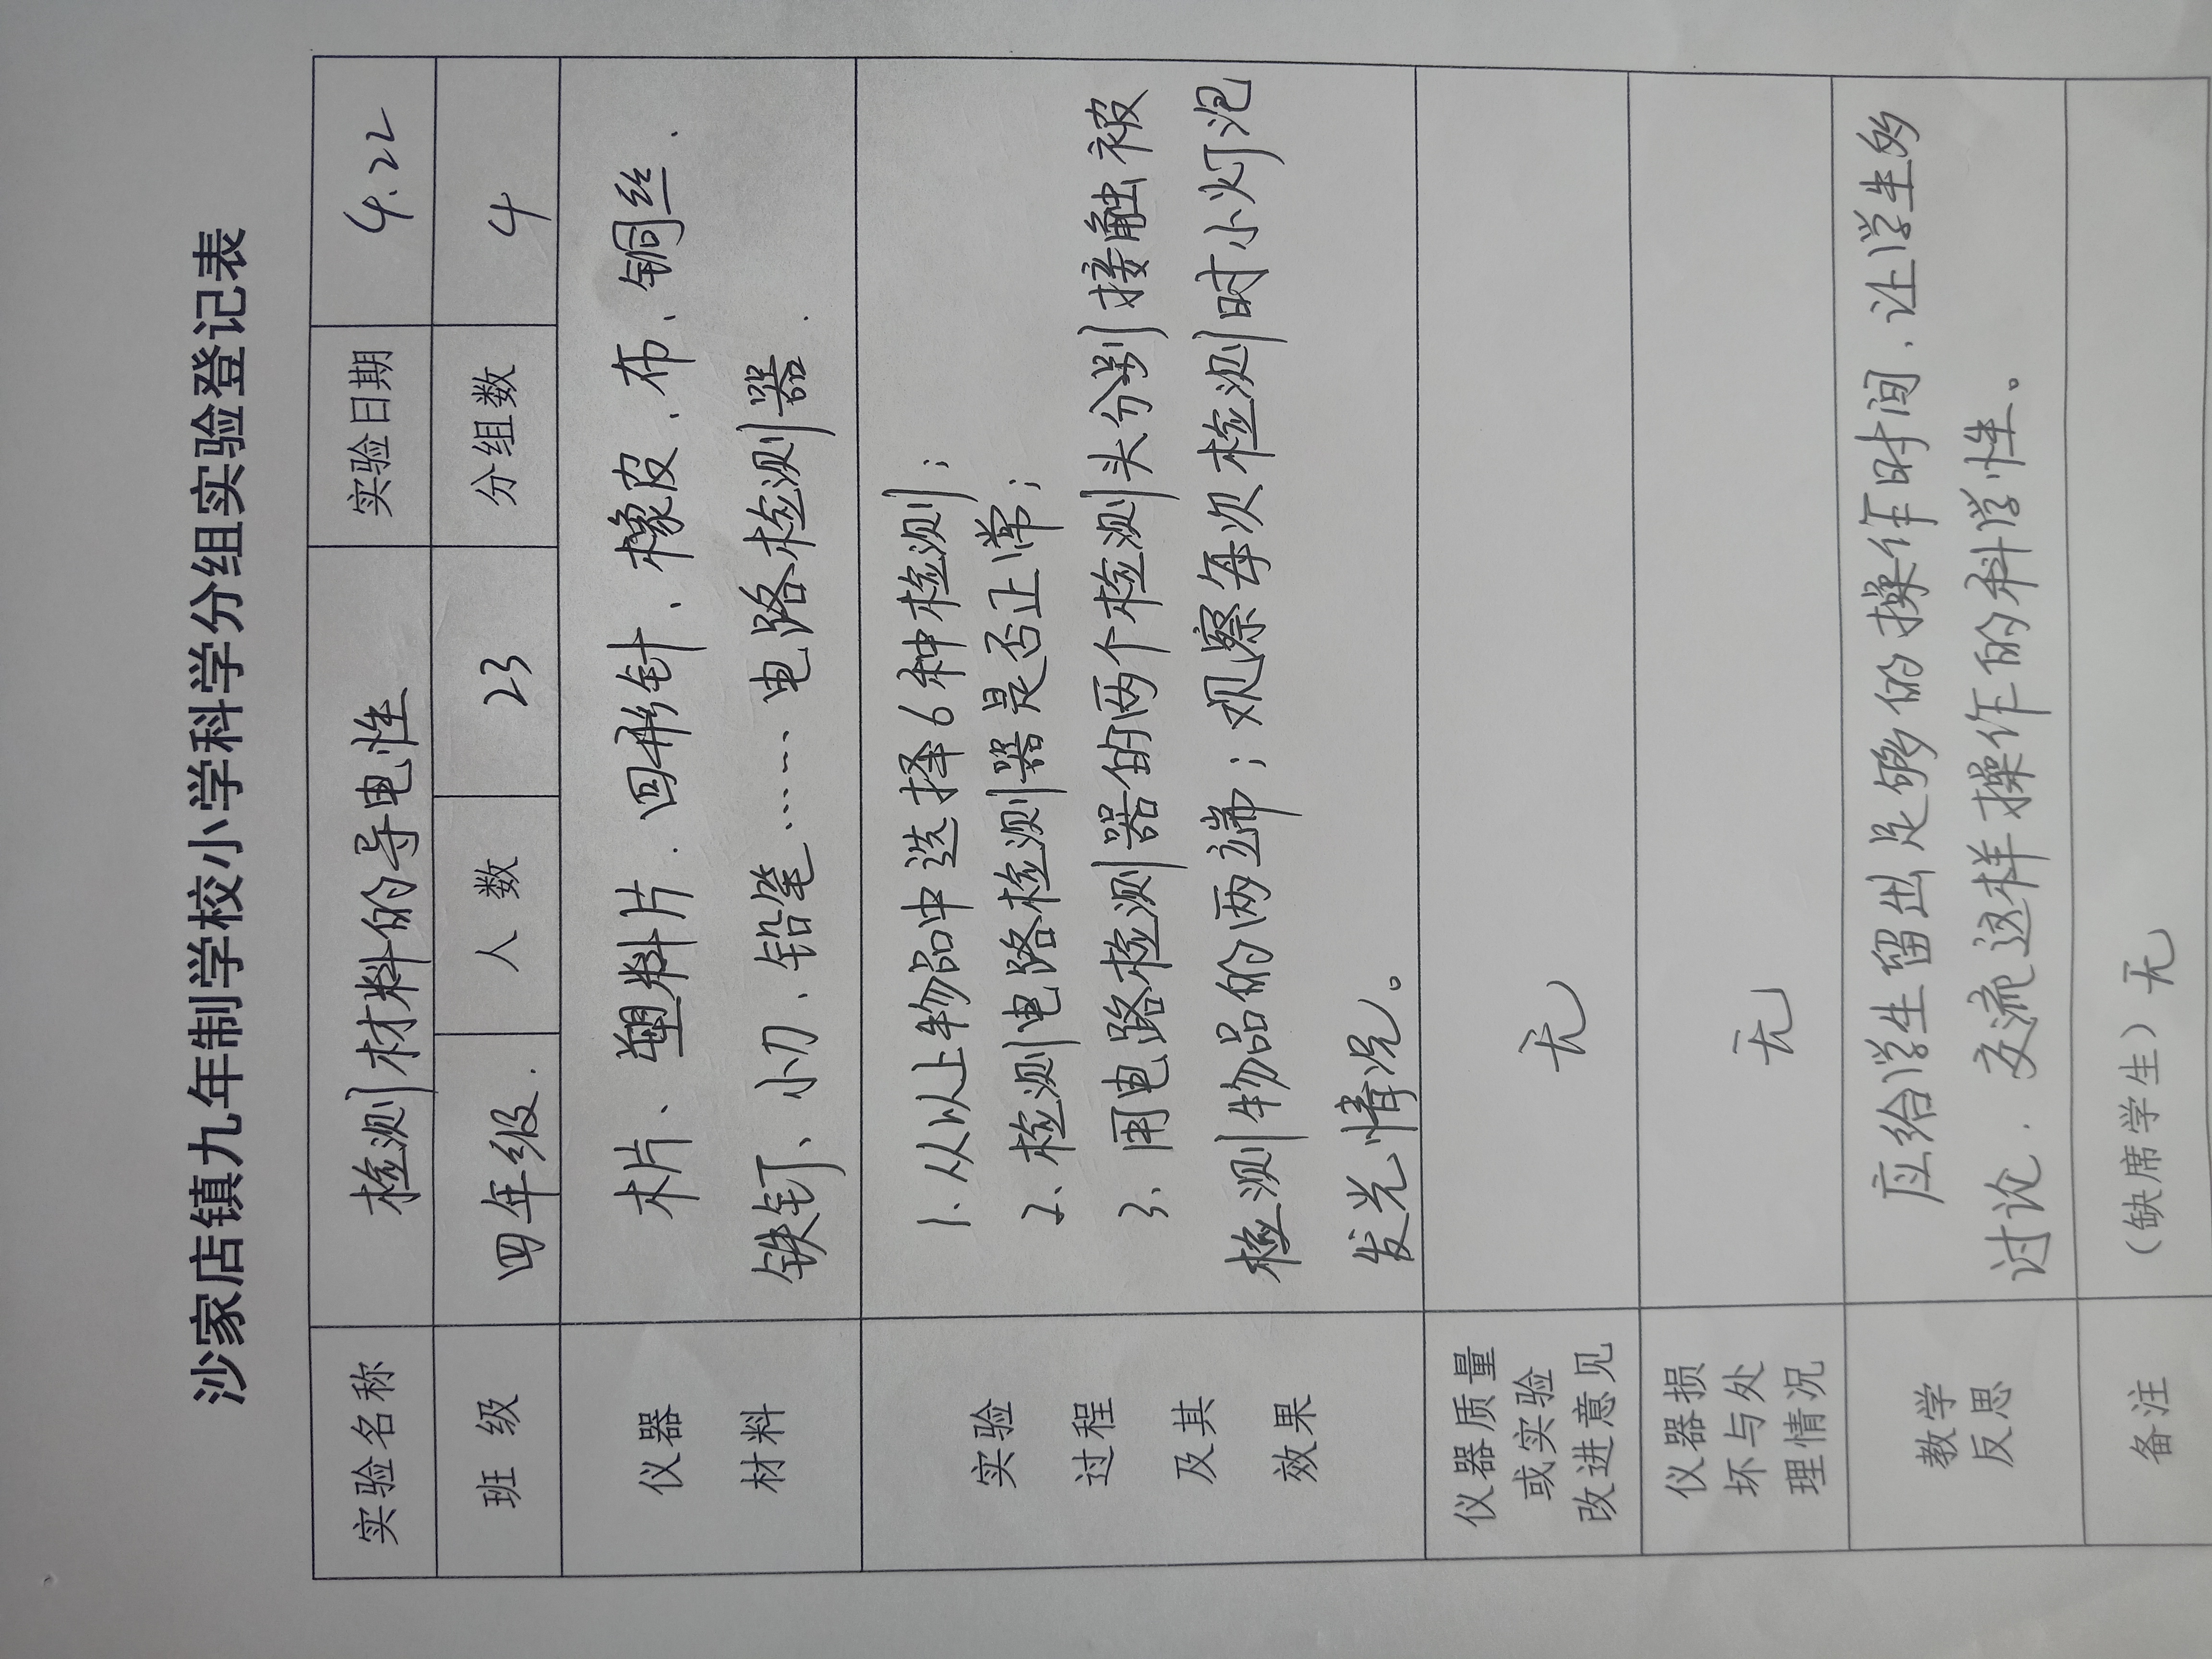 沙家店镇九年制学校小学科学分组实验登记表
实验名称 检测材料的导电性 实验日期 4.22
班 级 四年级. 人 数 23 分组数 4
仪器
材料
木片、塑料片.回形针、橡皮、布、铜丝.
铁钉、小刀、铅笔……电路检测器.
实验
过程
及其
效果
1.从以上物品中选择6种检测；
2、检测电路检测器是否正常；
3、用电路检测器的两个检测头分别接触被
检测物品的两端；观察每次检测时小灯泡
发光情况。
仪器质量
或实验
改进意见
无
仪器损
坏与处
理情况
无
教学
反思
应给学生留出足够的操作时间、让学生多
讨论.交流这样操作的科学性。
备注 （缺席学生）无